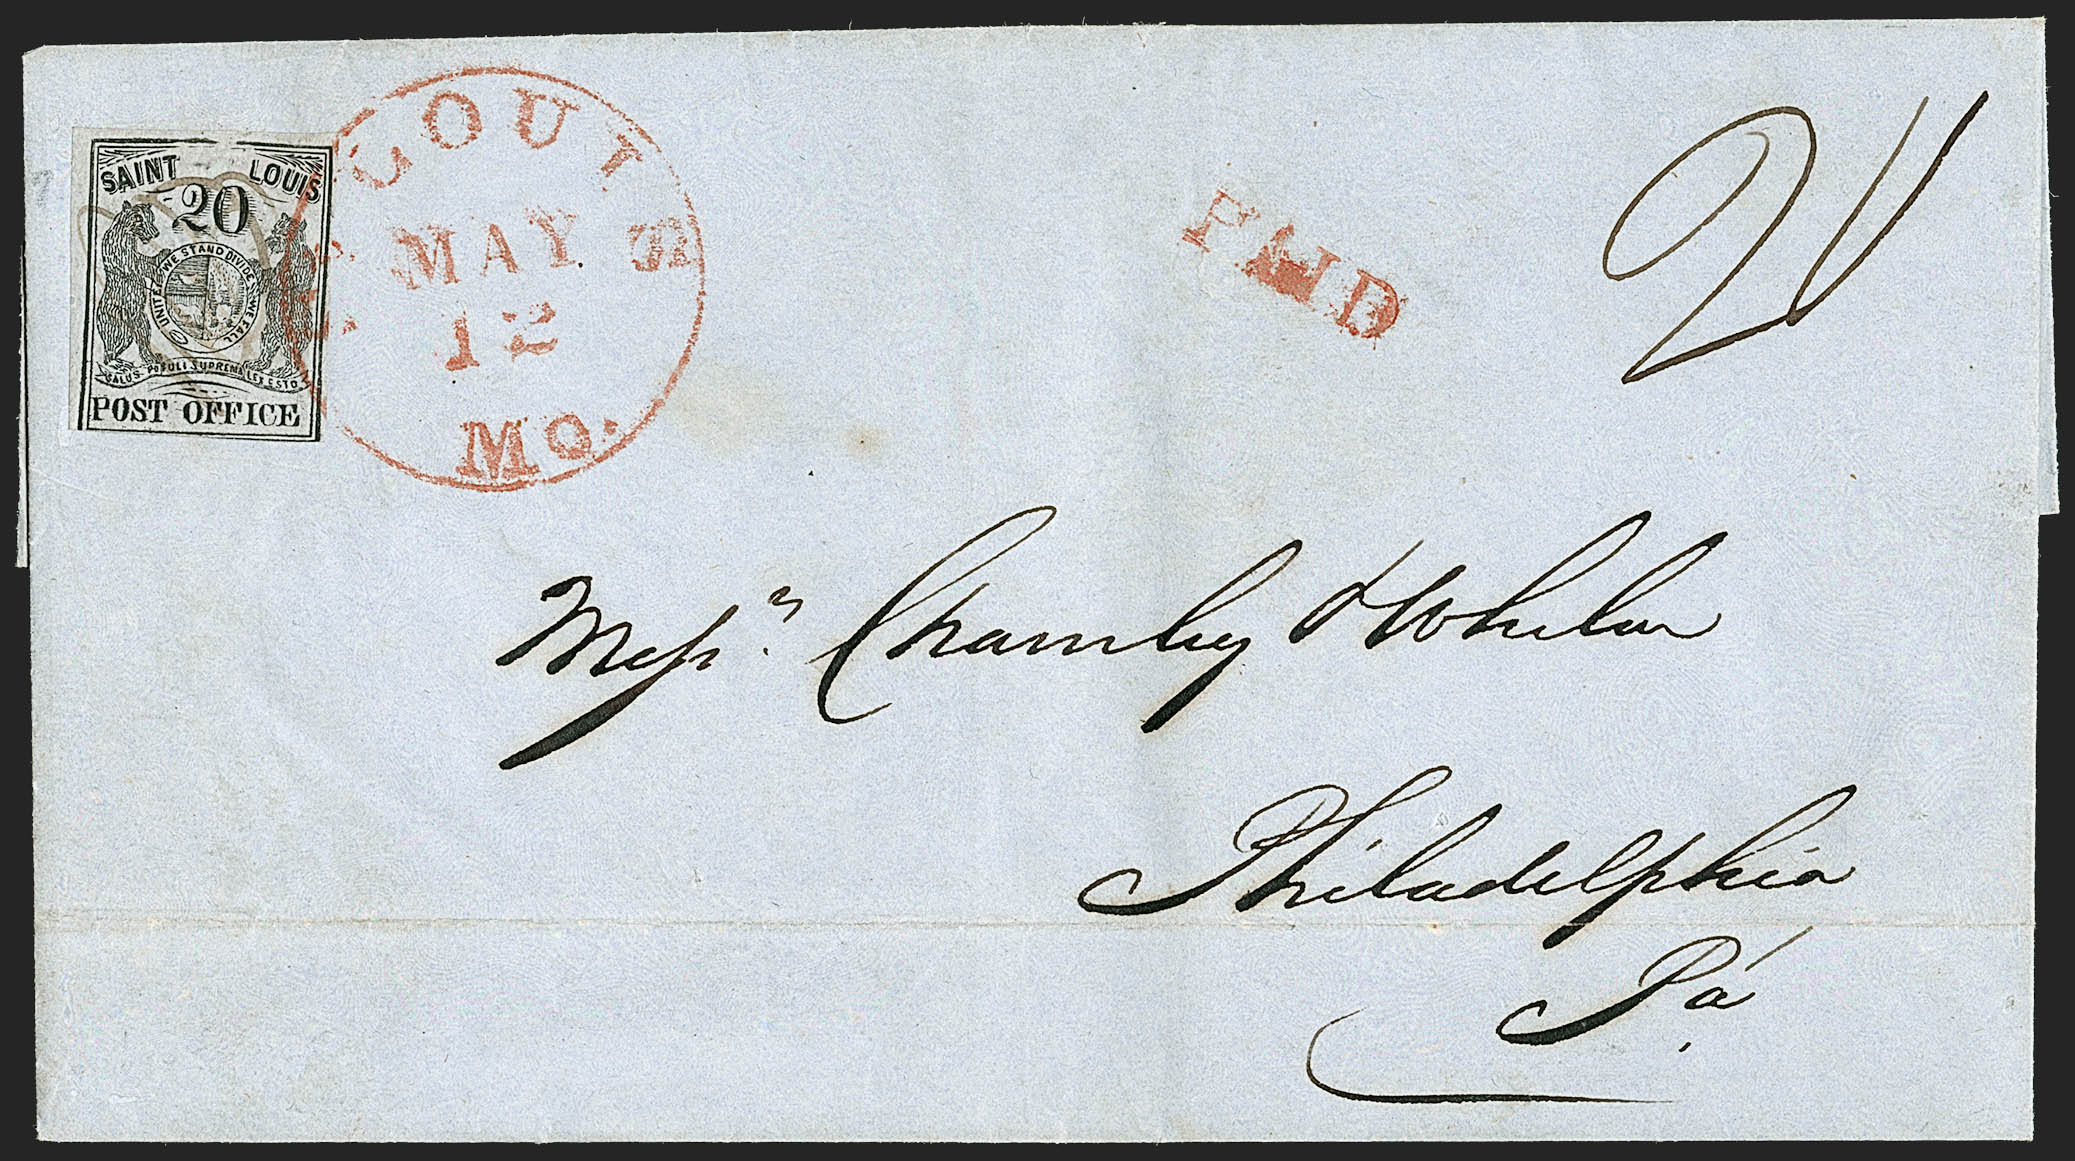 SAINT LOUIS
20
UNITED WE STAND DIVIDED WE FALL
SALUS POPULI SUPREMA LEX ESTO
POST OFFICE
LOUIS
MAY
12
MO.
PAID
Messrs. Charnley & Whelen
Philadelphia
Pa